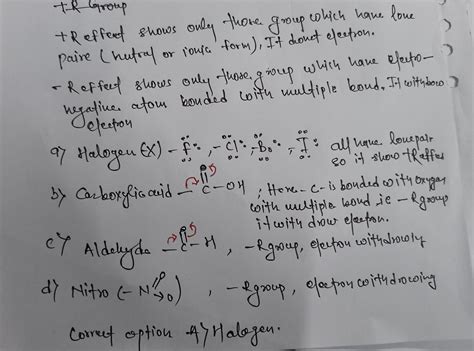 +R Group
+R effect shows only those group which have lone
paire (nutral or ionic form), It donet electron.
- R effect shows only those group which have electo-
negative atom bonded with multiple bond. It withdraw
electron
a) Halogen (X) –F:, –Cl:, –Br:, –I: all have lonepair
so it show +R effec
b) Carboxylic acid –C–OH ; Here -c- is bonded with oxygen
O
with multiple bond i.e –R group
it with drow electron.
c) Aldehyde –C–H , –R group, electron withdrowly
O
d) Nitro (–N→O) , –R group, electron withdrowing
O
Correct option A) Halogen.